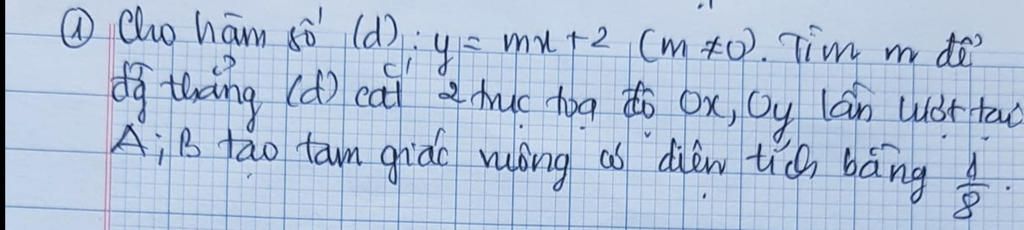 ① Cho hàm số (d): y = mx + 2 (m ≠ 0). Tìm m để
đg thẳng (d) cắt 2 trục tọa độ Ox, Oy lần lượt tại
A; B tạo tam giác vuông có diện tích bằng 1/8.